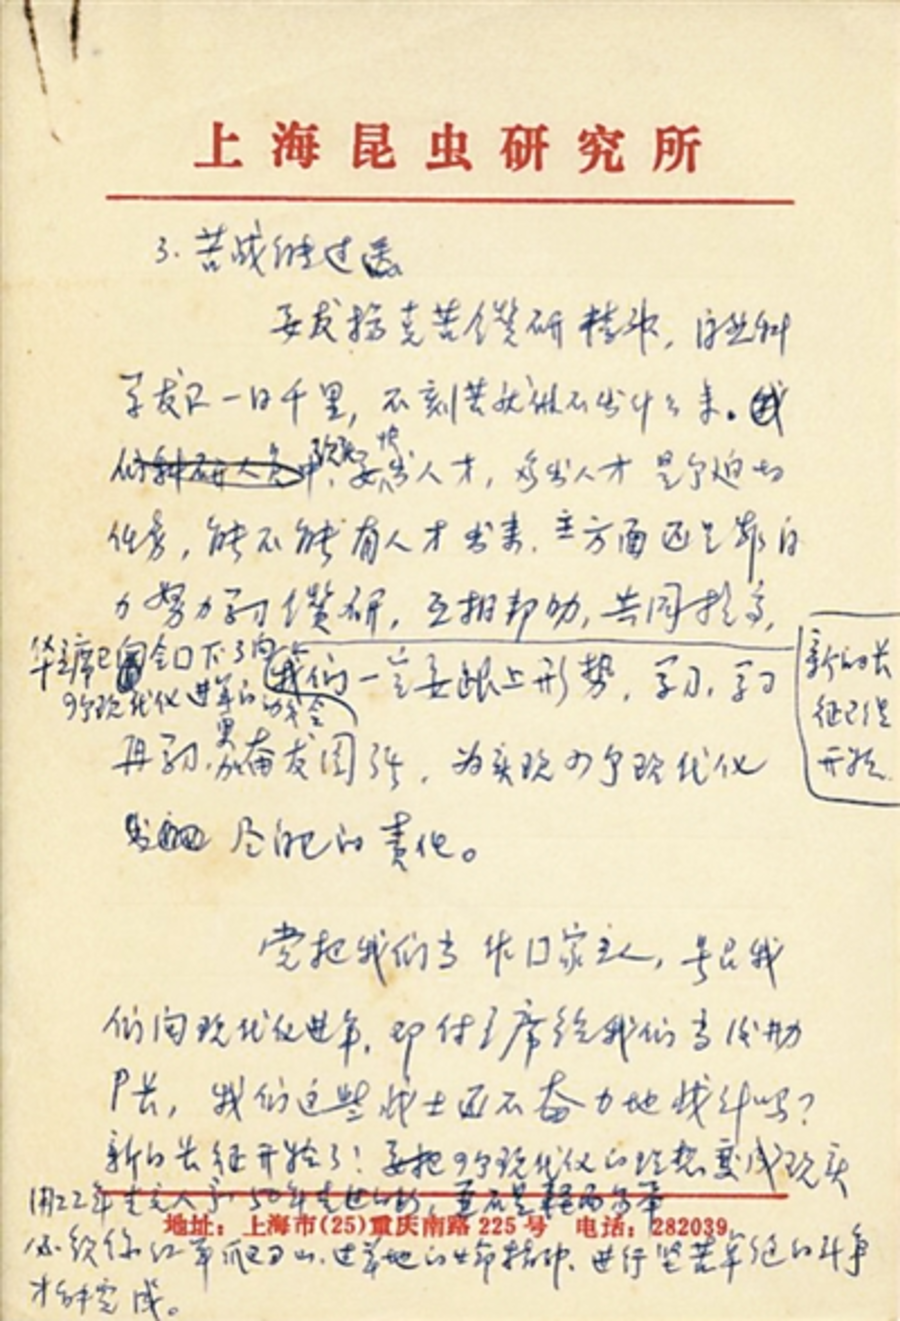 上海昆虫研究所
3. 苦战能过关
要发扬克苦钻研精神，自然科
学发展一日千里，不刻苦就做不出什么来。我
们 要快出人才，多出人才是个迫切
任务，能不能有人才出来，主方面还是靠自
力努力学习钻研，互相帮助，共同提高，
新的长
征已经
开始
华主席已 全国下了向
4个现代化进军的动员令
我们一定要跟上形势，学习，学习
再学习，更加奋发图强，为实现4个现代化
尽自己的责任。
党把我们当作国家主人，号召我
们向现代化进军，叶付主席给我们当后勤
P长，我们这些战士还不奋力地战斗吗？
新的长征开始了！要把4个现代化的理想变成现实
用22年 走完人家50年走过的路，
地址：上海市(25)重庆南路225号 电话：282039
必须像红军爬雪山、过草地的革命精神，进行坚苦卓绝的斗争
才能完成。